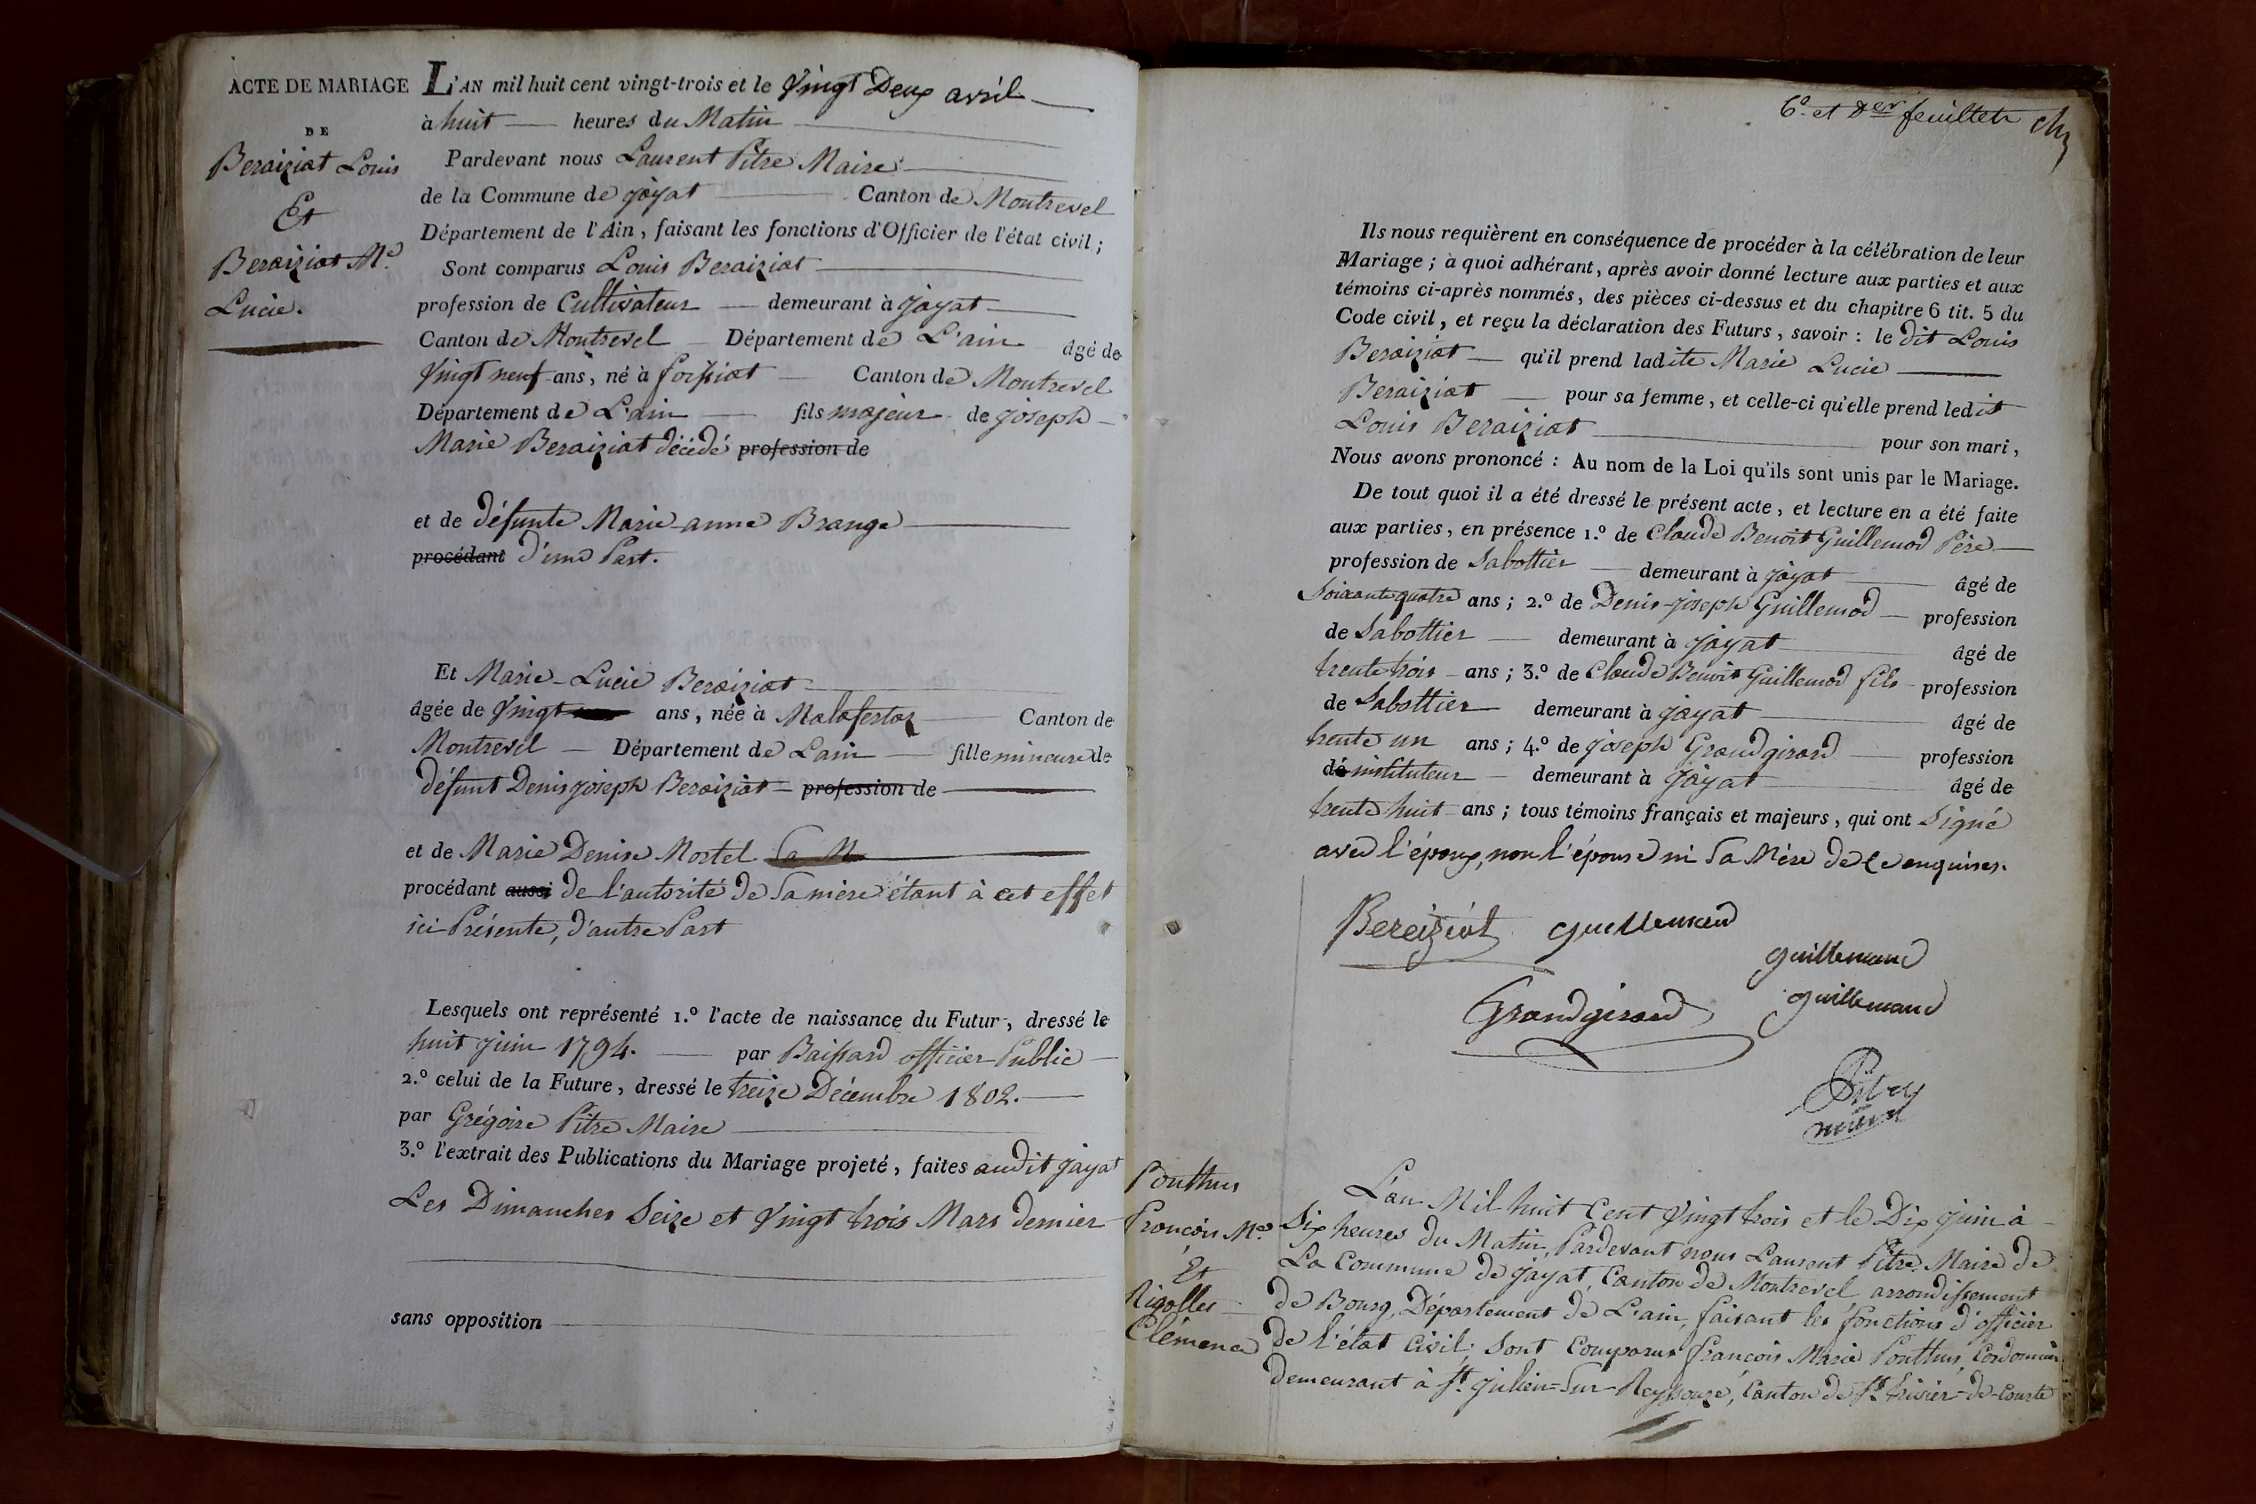 ACTE DE MARIAGE
DE
Beraiziat Louis
Et
Beraiziat Me
Lucie.
L'AN mil huit cent vingt-trois et le Vingt Deux avril
à huit heures du Matin
Pardevant nous Laurent Pitre Maire
de la Commune de jayat Canton de Montrevel
Département de l'Ain, faisant les fonctions d'Officier de l'état civil;
Sont comparus Louis Beraiziat
profession de Cultivateur demeurant à jayat
Canton de Montrevel Département de L'ain âgé de
Vingt neuf ans, né à foissiat Canton de Montrevel
Département de L'ain fils majeur de joseph
Marie Beraiziat décédé profession de
et de défunte Marie-anne Brange
procédant d'une Part.
Et Marie-Lucie Beraiziat
âgée de Vingt ans, née à Malafertaz Canton de
Montrevel Département de Lain fille mineure de
défunt Denis joseph Beraiziat profession de
et de Marie Denise Mortel Sa M
procédant aussi de l'autorité de Sa mère étant à cet effet
ici Présente, d'autre Part
Lesquels ont représenté 1.º l'acte de naissance du Futur, dressé le
huit juin 1794. par Baissard officier Public
2.º celui de la Future, dressé le treize Décembre 1802.
par Grégoire Pitre Maire
3.º l'extrait des Publications du Mariage projeté, faites audit jayat
Les Dimanches Seize et Vingt trois Mars dernier
sans opposition
6e et der feuillet
Ils nous requièrent en conséquence de procéder à la célébration de leur
Mariage; à quoi adhérant, après avoir donné lecture aux parties et aux
témoins ci-après nommés, des pièces ci-dessus et du chapitre 6 tit. 5 du
Code civil, et reçu la déclaration des Futurs, savoir: le dit Louis
Beraiziat qu'il prend ladite Marie Lucie
Beraiziat pour sa femme, et celle-ci qu'elle prend ledit
Louis Beraiziat pour son mari,
Nous avons prononcé: Au nom de la Loi qu'ils sont unis par le Mariage.
De tout quoi il a été dressé le présent acte, et lecture en a été faite
aux parties, en présence 1.º de Claude Benoit Guillemod Père
profession de Sabottier demeurant à jayat âgé de
Soixante quatre ans; 2.º de Denis-joseph Guillemod profession
de Sabottier demeurant à jayat âgé de
trente trois ans; 3.º de Claude Benoit Guillemod fils profession
de Sabottier demeurant à jayat âgé de
trente un ans; 4.º de joseph Grandgirard profession
dé instituteur demeurant à jayat âgé de
trente huit ans; tous témoins français et majeurs, qui ont Signé
avec l'époux, non l'épouse ni Sa Mère de ce enquises.
Bereiziat guillemaud
guillemaud
Grandgirard guillemaud
Pitre
maire
Ponthus
francois Me
Et
Rigollet
Clémence
L'an Mil huit Cent Vingt trois et le Dix juin à
Six heures du Matin, Pardevant nous Laurent Pitre Maire de
La Commune de jayat, Canton de Montrevel arrondissement
de Bourg, Département de L'ain, faisant les fonctions d'officier
de l'état Civil; Sont Comparus francois Marie Ponthus, Cordonnier
demeurant à St julien-Sur-Reyssouze, Canton de St trivier-de-Courte